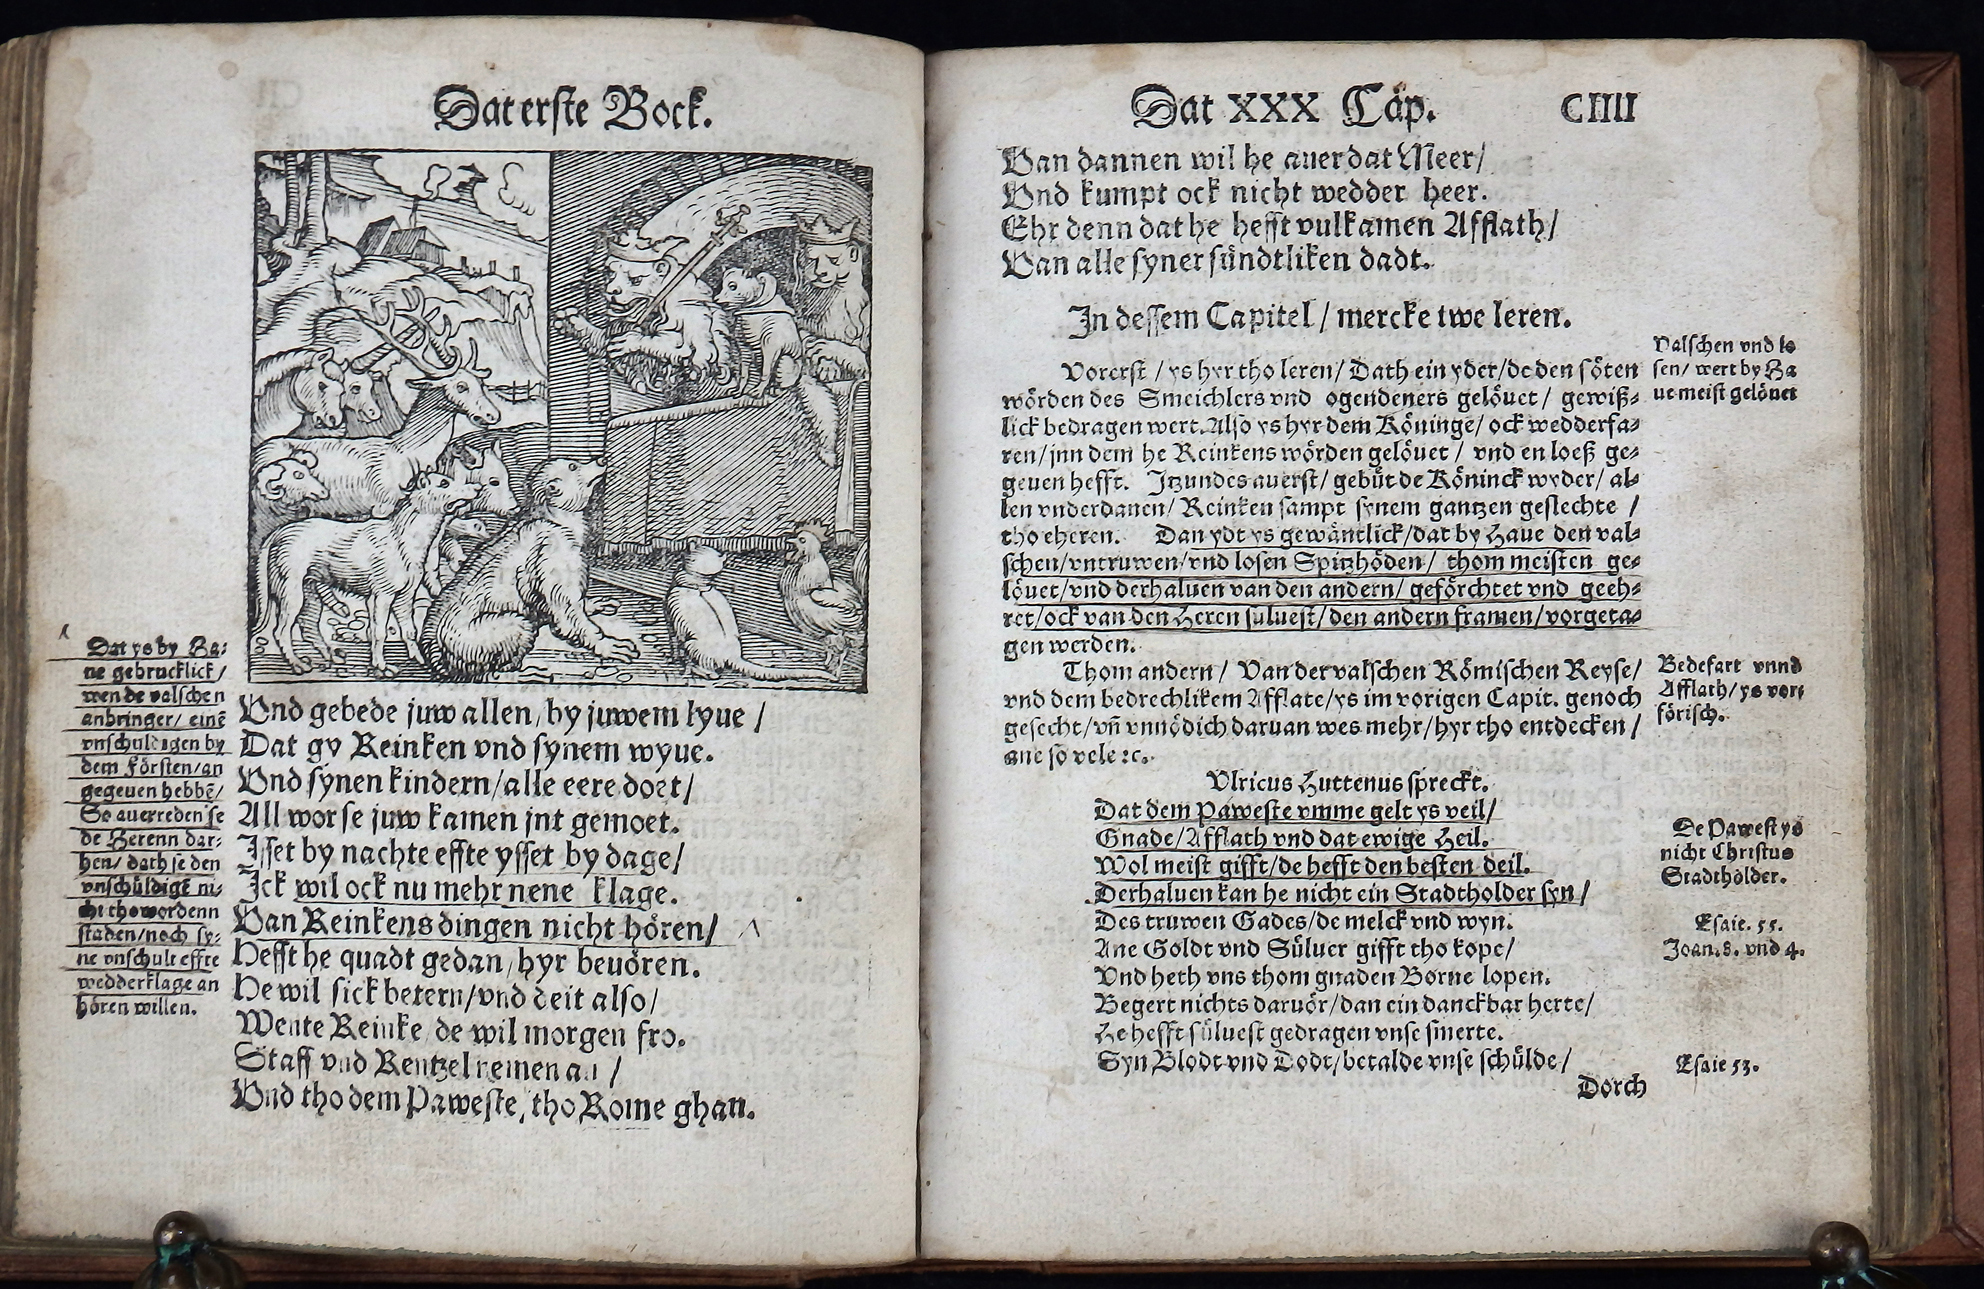 Dat erste Bock.
Dat ys by Ha-
ue gebrucklick/
wen de valschen
anbringer/ einē
vnschuldigen by
dem Försten/an
gegeuen hebbē/
So auerreden se
de Herenn dar-
hen/ dath se den
vnschüldigē ni-
cht tho wordenn
staden/noch sy-
ne vnschult effte
wedderklage an
hören willen.
Vnd gebede juw allen/ by juwem lyue /
Dat gy Reinken vnd synem wyue.
Vnd synen kindern/alle eere doet/
All wor se juw kamen jnt gemoet.
Jsset by nachte effte ysset by dage/
Jck wil ock nu mehr nene klage.
Van Reinkens dingen nicht hören/
Hefft he quadt gedan/ hyr beuören.
He wil sick betern/vnd deit also/
Wente Reinke/ de wil morgen fro.
Staff vnd Rentzel nemen an /
Vnd tho dem Paweste/ tho Rome ghan.
Dat XXX Cap. CIIII
Van dannen wil he auer dat Meer/
Vnd kumpt ock nicht wedder heer.
Ehr denn dat he hefft vulkamen Afflath/
Van alle syner sündtliken dadt.
Jn dessem Capitel / mercke twe leren.
Vorerst / ys hyr tho leren/ Dath ein yder/de den söten
wörden des Smeichlers vnd ogendeners gelöuet / gewiß-
lick bedragen wert. Also ys hyr dem Köninge/ ock wedderfa-
ren/jnn dem he Reinkens wörden gelöuet / vnd en loeß ge-
geuen hefft. Jtzundes auerst/ gebüt de Köninck wyder/ al-
len vnderdanen/ Reinken sampt synem gantzen geslechte /
tho eheren. Dan ydt ys gewäntlick/dat by Haue den val-
schen/vntruwen/vnd losen Spitzhöden/ thom meisten ge-
löuet/vnd derhaluen van den andern/ geförchtet vnd geeh-
ret/ock van den Heren süluest/den andern framen/vorgeta-
gen werden.
Valschen vnd lo
sen/ wert by Ha
ue meist gelöuet
Thom andern/ Van der valschen Römischen Reyse/
vnd dem bedrechlikem Afflate/ys im vorigen Capit. genoch
gesecht/vñ vnnödich daruan wes mehr/hyr tho entdecken /
ane so vele ꝛc.
Bedefart vnnd
Afflath/ys vor-
förisch.
Vlricus Huttenus spreckt.
Dat dem Paweste vmme gelt ys veil/
Gnade/Afflath vnd dat ewige Heil.
Wol meist gifft/de hefft den besten deil.
Derhaluen kan he nicht ein Stadtholder syn/
Des truwen Gades/de melck vnd wyn.
Ane Goldt vnd Süluer gifft tho kope/
Vnd heth vns thom gnaden Borne lopen.
Begert nichts daruör/dan ein danckbar herte/
He hefft süluest gedragen vnse smerte.
Syn Blodt vnd Dodt/betalde vnse schülde/
De Pawest ys
nicht Christus
Stadthölder.
Esaie. 55.
Joan. 8. vnd 4.
Esaie 53.
Dorch